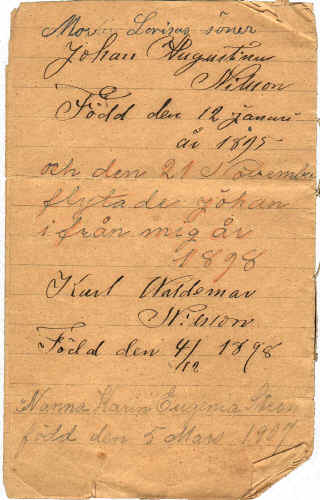 Mor Lovisas söner
Johan Augustinu
Nilsson
Född den 12 januari
år 1895
och den 21 November
flytade Johan
ifrån mig år
1898
Karl Waldemar
Nilsson
Född den 4/12 1898
Nanna Karin Eugenia
född den 5 Mars 1907